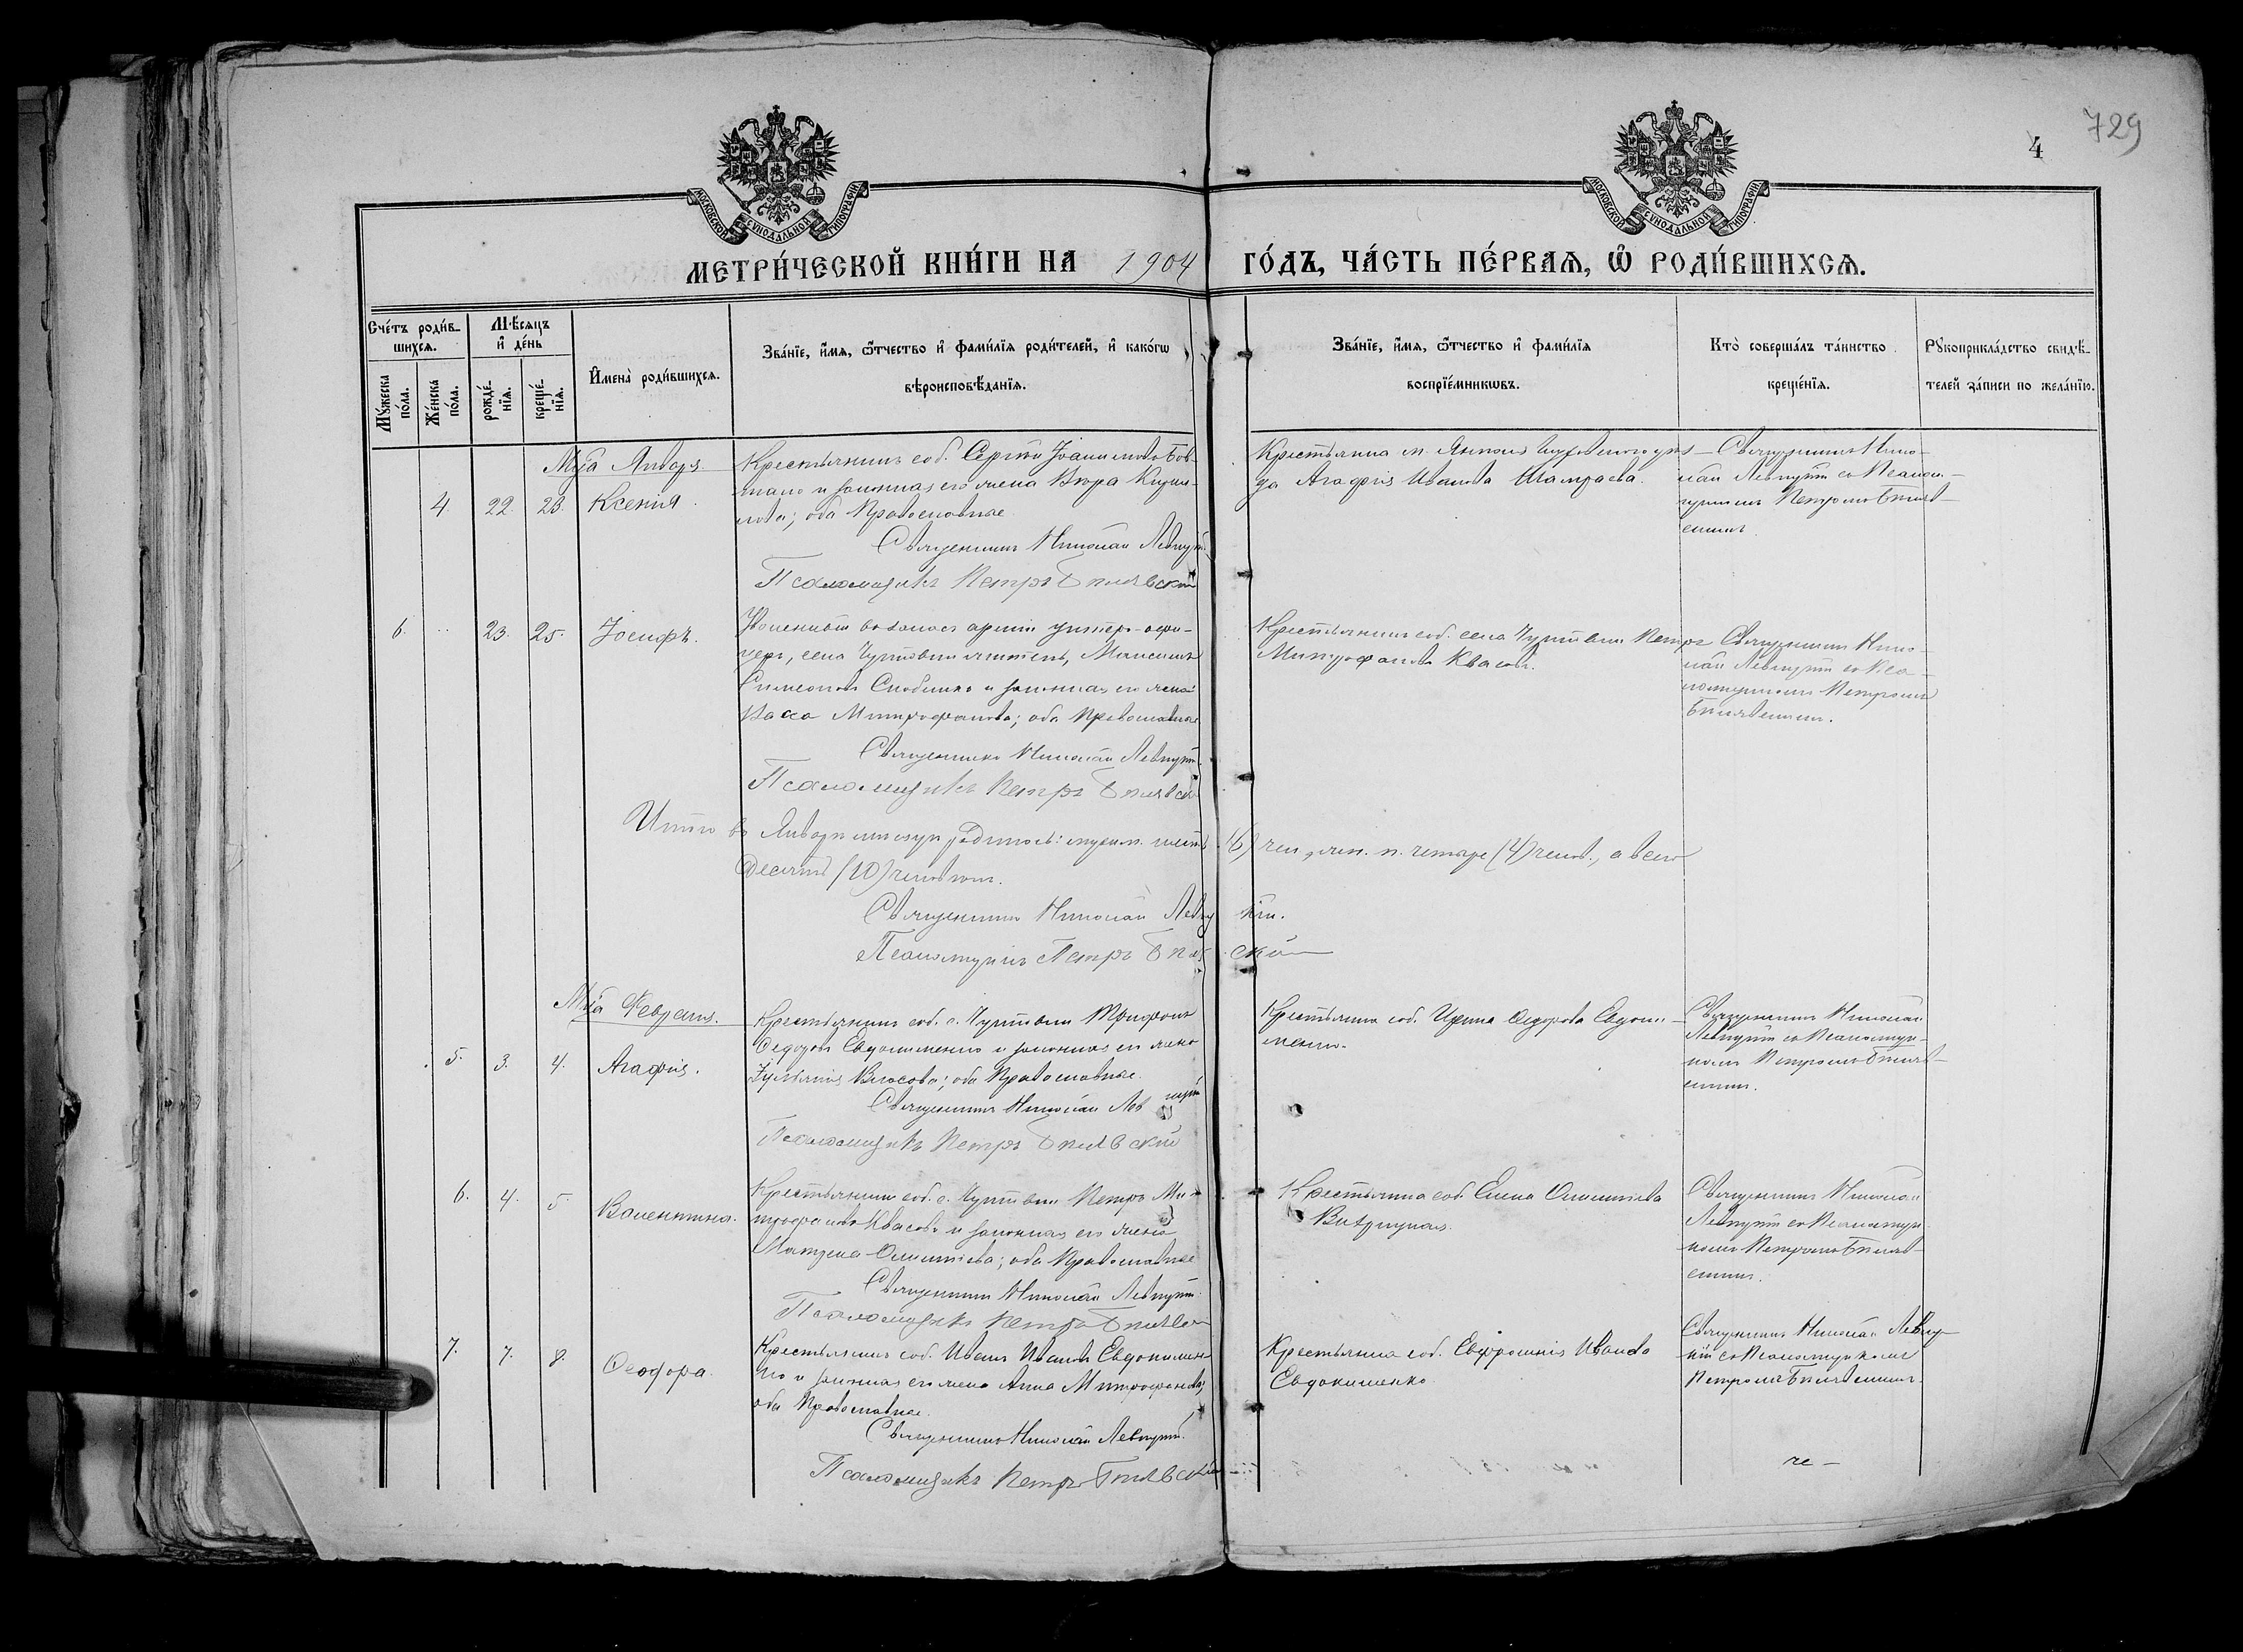 729
4
МОСКОВСКОЙ СѴНОДАЛЬНОЙ ТИПОГРАФІИ
МОСКОВСКОЙ СѴНОДАЛЬНОЙ ТИПОГРАФІИ
МЕТРИ́ЧЕСКОЙ КНИ́ГИ НА 1904 ГО́ДЪ, ЧА́СТЬ ПЕ́РВАѦ, Ѡ҆ РОДИ́ВШИХСѦ.
Сче́тъ роди́в-
шихсѧ.
Мꙋ́жеска
по́ла.
Же́нска
по́ла.
Мѣ́сѧцъ
и҆ де́нь
рожде́-
нїѧ.
креще́-
нїѧ.
И҆мена̀ роди́вшихсѧ.
Зва́нїе, и҆́мѧ, ѻ҆́тчество и҆ фами́лїѧ роди́телей, и҆ како́гѡ
вѣроисповѣ́данїѧ.
Зва́нїе, и҆́мѧ, ѻ҆́тчество и҆ фами́лїѧ
воспрїе́мникѡвъ.
Кто̀ соверша́лъ та́инство
креще́нїѧ.
Рꙋкоприкла́дство свидѣ́-
телей за́писи по жела́нїю.
Мца Января.
4. 22. 23. Ксенія.
Крестьянинъ соб. Сергій Іоанновъ
и законная его жена
; оба Православные.
Священникъ Николай Левицкій.
Псаломщикъ Петръ Билявскій
Агафія Иванова
Священникъ Нико-
лай Левицкій съ Псалом-
щикомъ Петромъ Биляв-
скимъ.
6. .. 23. 25. Іосифъ.
Уволенный въ запасъ арміи унтеръ-офи-
церъ, села житель, Максимъ
Симеоновъ и законная его жена
Васса Митрофанова; оба Православные
Священникъ Николай Левицкій.
Псаломщикъ Петръ Билявскій
Крестьянинъ соб. села Петръ
Митрофановъ Квасовъ.
Священникъ Нико-
лай Левицкій съ Пса-
ломщикомъ Петромъ
Билявскимъ.
Итого въ Январѣ мѣсяцѣ родилось: муж. п. шесть (6) чел., жен. п. четыре (4) челов., а всего
Десять (10) человѣкъ.
Священникъ Николай Левицкій.
Псаломщикъ Петръ Билявскій
Мца Февраля.
5. 3. 4. Агафія.
Крестьянинъ соб. с. Трифонъ
Федоровъ Евдокименко и законная его жена
Іуліанія Власова; оба Православные.
Священникъ Николай Левицкій
Псаломщикъ Петръ Билявскій
Крестьянка соб. Ирина Федорова Евдоки-
менко.
Священникъ Николай
Левицкій съ Псаломщи-
комъ Петромъ Биляв-
скимъ.
6. 4. 5. Валентина.
Крестьянинъ соб. с. Петръ Ми-
трофановъ Квасовъ и законная его жена
; оба Православные
Священникъ Николай Левицкій.
Псаломщикъ Петръ Билявскій
Крестьянка соб. Елена
Священникъ Николай
Левицкій съ Псаломщи-
комъ Петромъ Биляв-
скимъ.
7. 7. 8. Ѳеодора.
Крестьянинъ соб. Иванъ Ивановъ Евдокимен-
ко и законная его жена Анна Митрофанова;
оба Православные.
Священникъ Николай Левицкій.
Псаломщикъ Петръ Билявскій
Крестьянка соб. Евфросинія Иванова
Евдокименко.
Священникъ Николай Левиц-
кій съ Псаломщикомъ
Петромъ Билявскимъ.